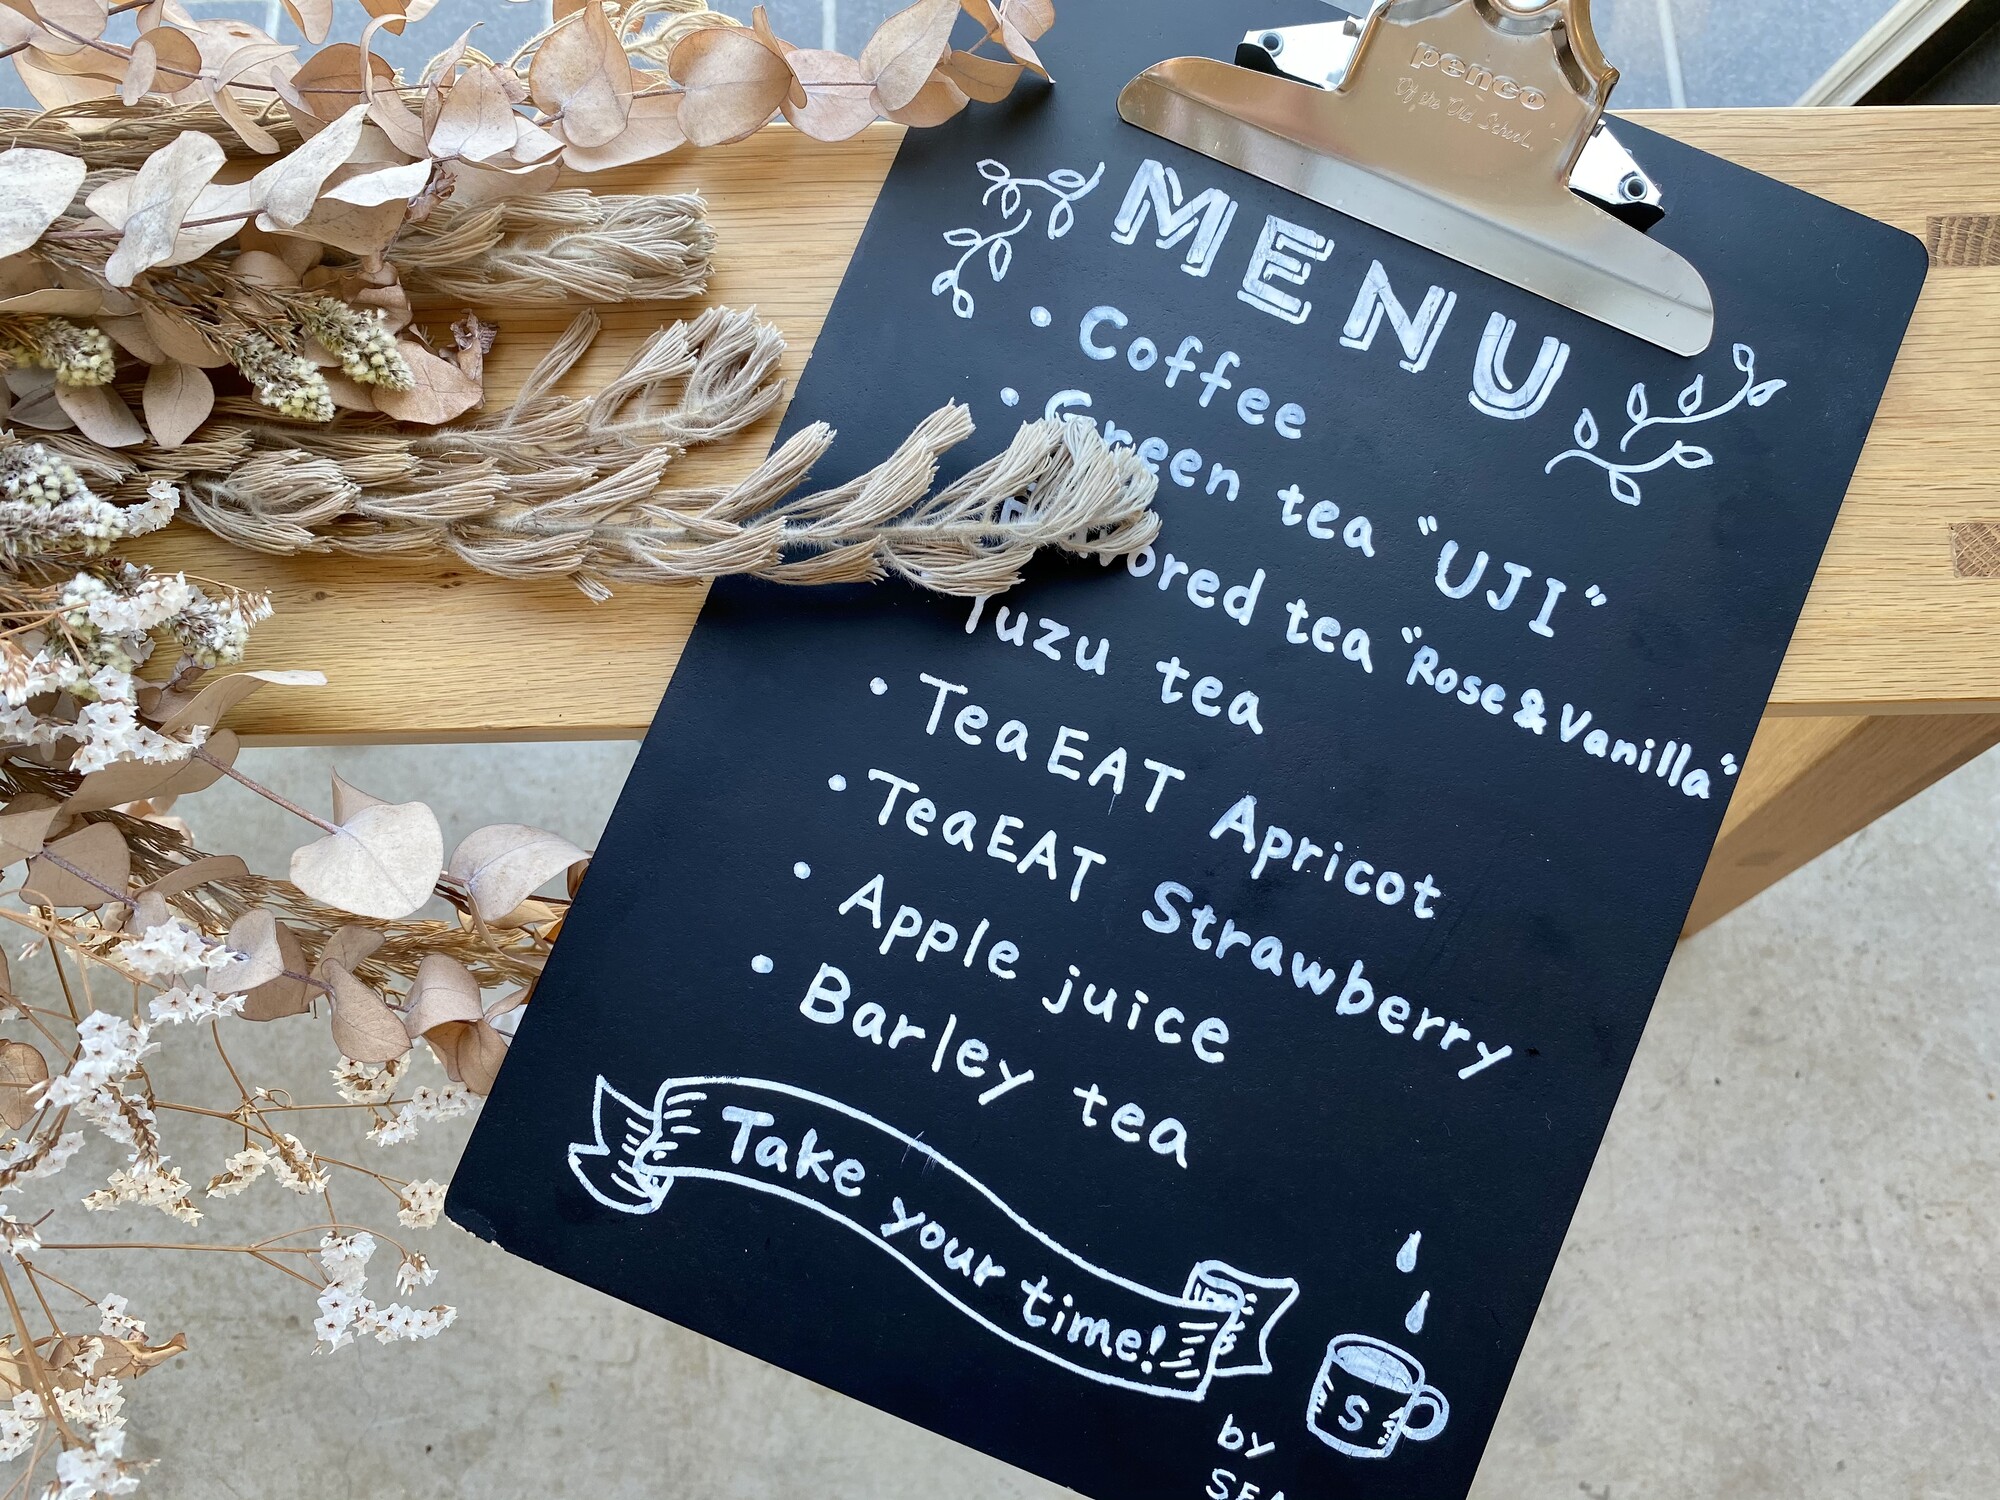 penco
Of the Old School.
MENU
• Coffee
• Green tea "UJI"
tea "Rose & Vanilla"
Yuzu tea
• TeaEAT Apricot
• TeaEAT Strawberry
• Apple juice
• Barley tea
Take your time!
S
by